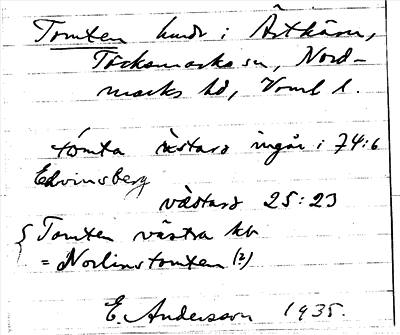 Tomten hmdr i Årtkärn,
Töcksmarks sn, Nord-
marks hd, Vrml l.
tomta östars ingår i 74:6
Edvinsberg
västars 25:23
Tomten västra kb
= Norlinstomten (2)
E. Andersson 1935.